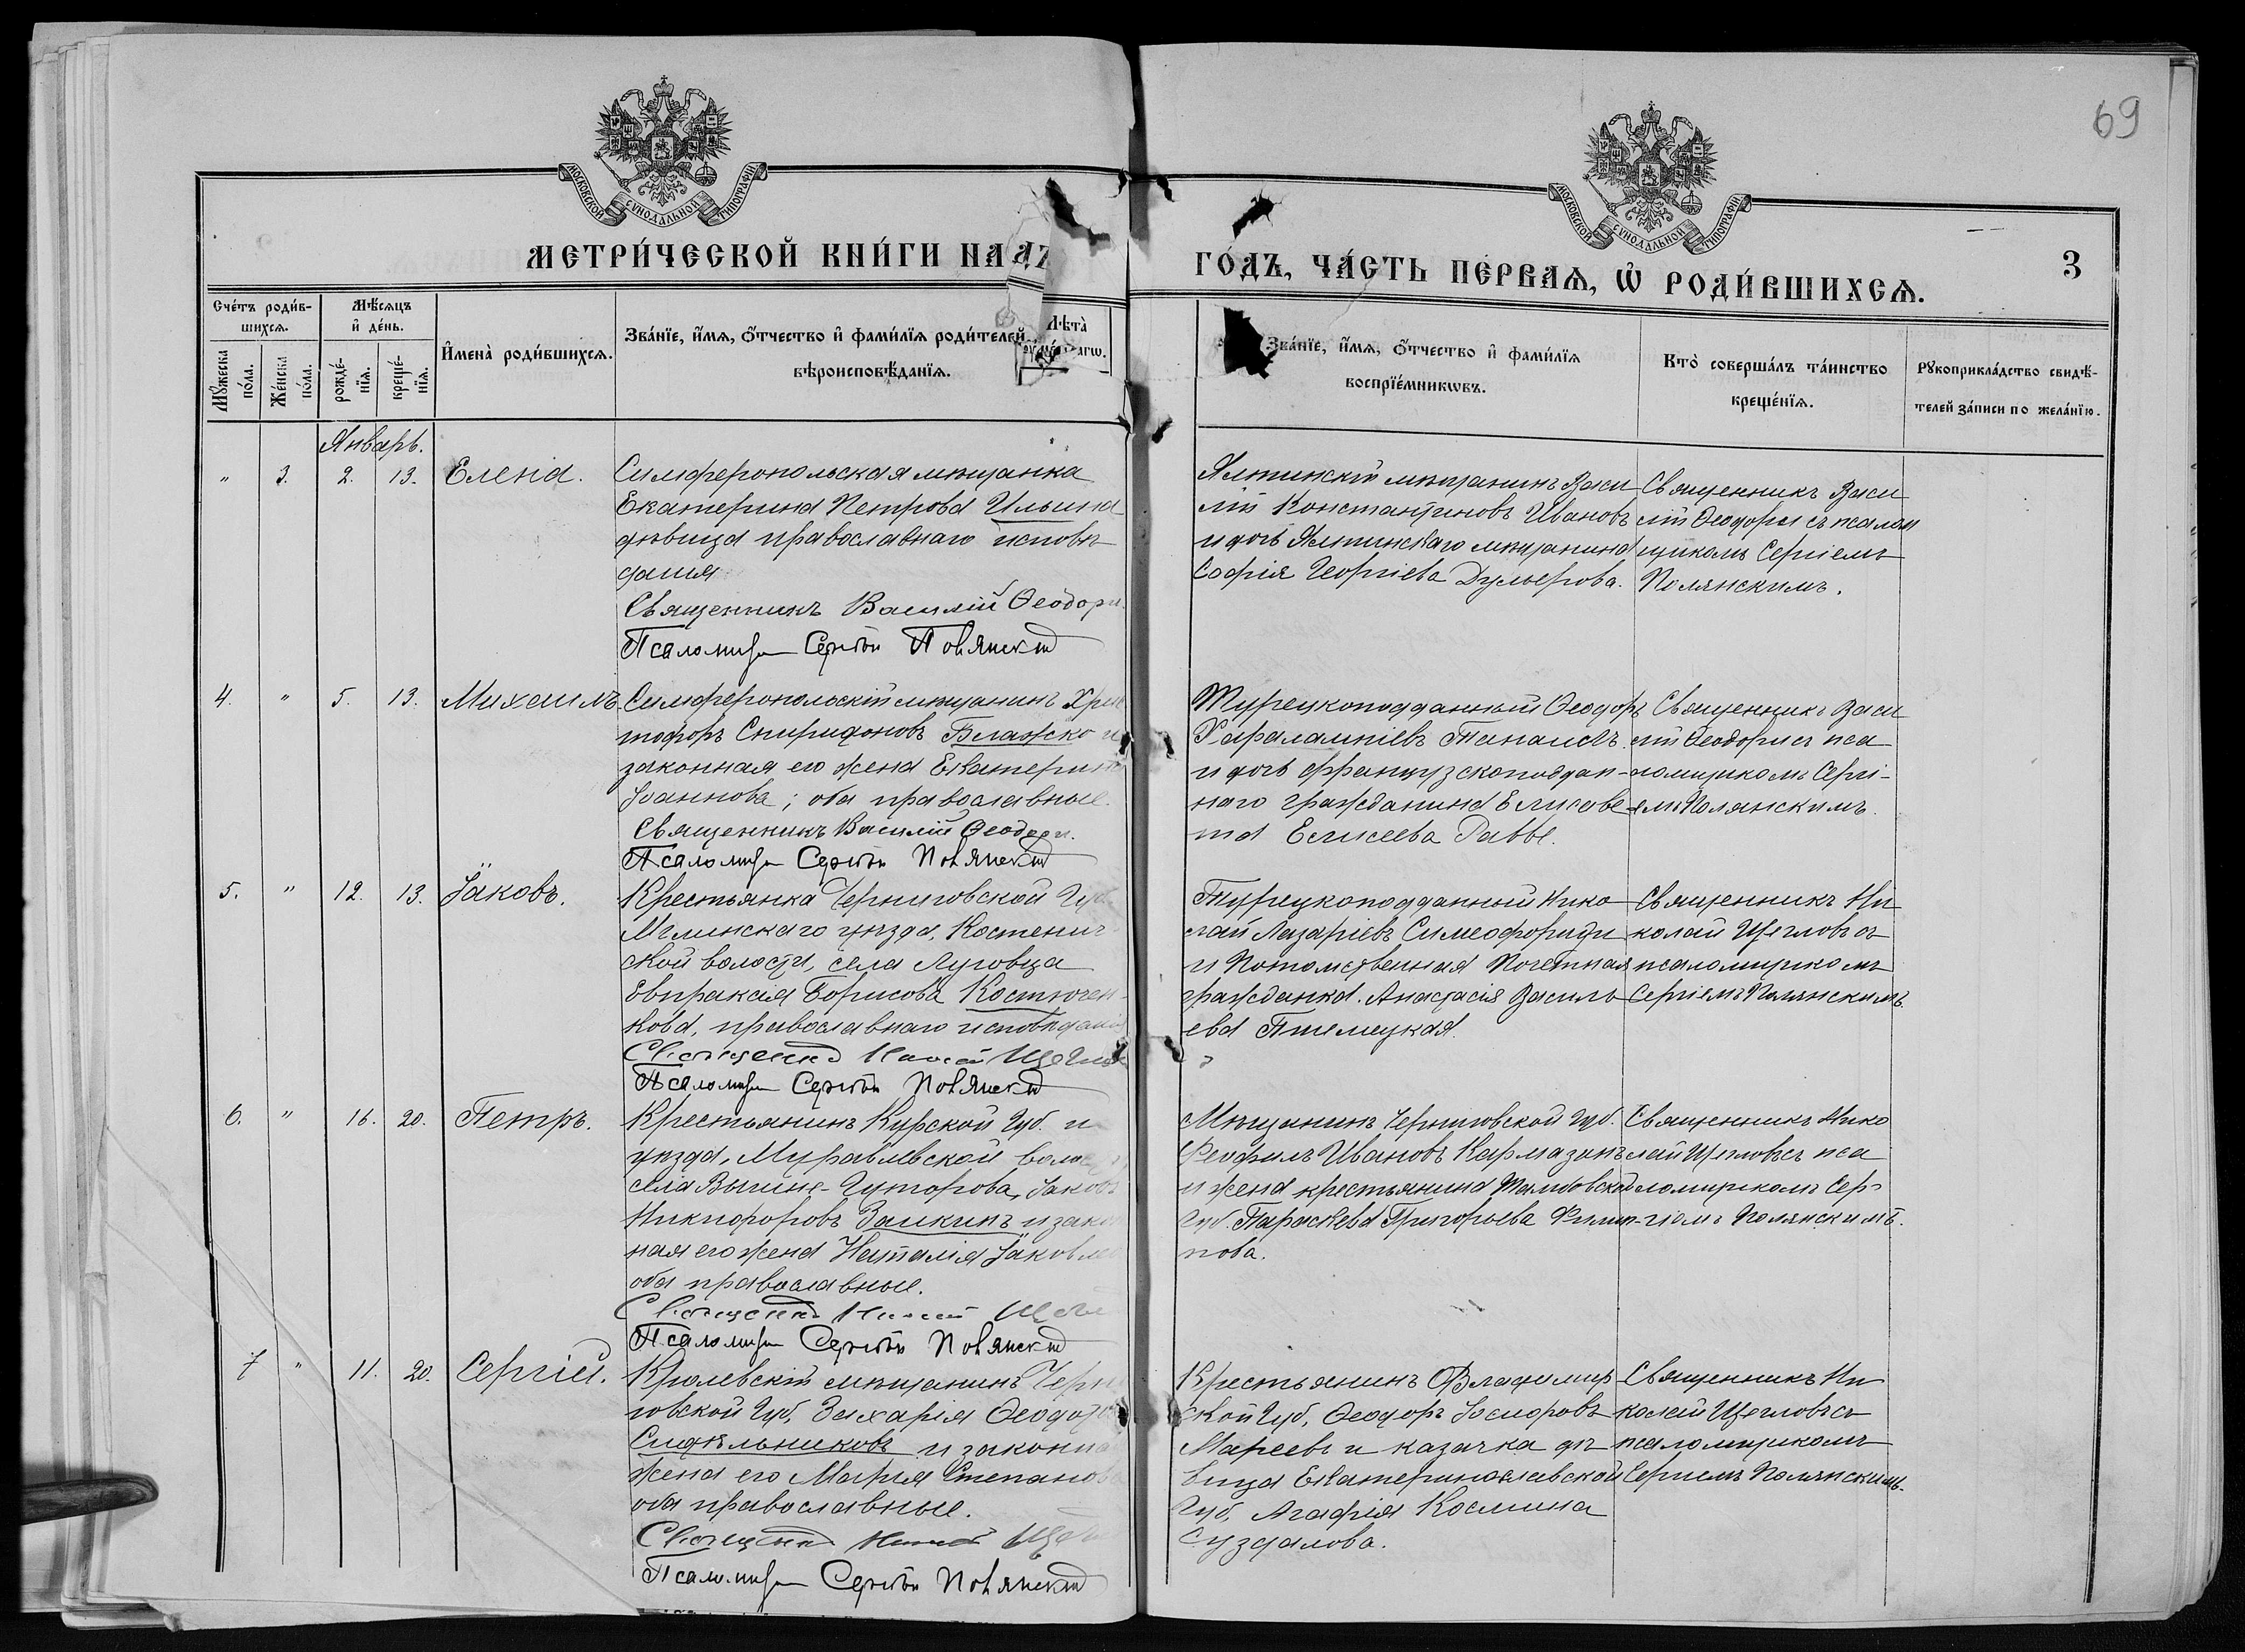 69
МОСКОВСКОЙ СѴНОДАЛЬНОЙ ТИПОГРАФІИ
МОСКОВСКОЙ СѴНОДАЛЬНОЙ ТИПОГРАФІИ
МЕТРИ́ЧЕСКОЙ КНИ́ГИ НА
ГО́ДЪ, ЧА́СТЬ ПЕ́РВАѦ, Ѡ҆ РОДИ́ВШИХСѦ.
3
Сче́тъ роди́в-
шихсѧ.
Мꙋ́жеска по́ла.
Же́нска по́ла.
Мѣ́сѧцъ
и҆ де́нь.
рожде́-нїѧ.
креще́-нїѧ.
И҆мена̀ роди́вшихсѧ.
Зва́нїе, и҆́мѧ, ѻ҆́тчество и҆ фами́лїѧ роди́телей
вѣроисповѣ́данїѧ.
Лѣта̀
Зва́нїе, и҆́мѧ, ѻ҆́тчество и҆ фами́лїѧ
воспрїе́мникѡвъ.
Кто̀ соверша́лъ та́инство
креще́нїѧ.
Рꙋкоприкла́дство свидѣ́-
телей за́писи по жела́нїю.
Январь.
" 3. 2. 13. Елена.
Симферопольская мѣщанка
Екатерина Петрова Ильина
дѣвица православнаго исповѣ
дания
Священникъ Василій Ѳеодори
Псаломщ Сергѣй Полянскій
Ялтинскій мѣщанинъ Васи
лій Константиновъ Ивановъ
и дочь Ялтинскаго мѣщанина
Софія Георгіева Дульерова.
Священникъ Васи
лій Ѳеодори съ псалом
щикомъ Сергіемъ
Полянскимъ.
4. " 5. 13. Михаилъ.
Симферопольскій мѣщанинъ Хрис
тофоръ Спиридоновъ Влажско и
законная его жена Екатерина
Іоаннова; оба православные.
Священникъ Василій Ѳеодори.
Псаломщ Сергѣй Полянскій
Турецкоподданный Ѳеодоръ
Харалампіевъ Танаисъ
и дочь французскоподдан-
наго гражданина Елисаве
та Елисеева Равве.
Священникъ Васи
лій Ѳеодори съ пса
ломщикомъ Сергі-
емъ Полянскимъ.
5. " 12. 13. Іаковъ.
Крестьянка Черниговской Губ.
Мглинскаго уѣзда, Костенич-
ской волости, села Луговца
Евпраксія Борисова Костючен-
кова, православнаго исповѣданія
Священникъ Николай Щеглов
Псаломщ Сергѣй Полянскій
Турецкоподданный Нико
лай Лазаріевъ Симеофориди
и Потомственная Почетная
гражданка Анастасія Василь
ева Пшемецкая
Священникъ Ни
колай Щегловъ съ
псаломщикомъ
Сергіемъ Полянскимъ.
6. " 16. 20. Петръ.
Крестьянинъ Курской Губ. и
уѣзда, Муравлевской волос
села Вышне-Гуторова, Іаковъ
Никифоровъ Заикинъ и закон
ная его жена Наталія Іаковле
оба православные.
Священникъ Николай Щегл
Псаломщ Сергѣй Полянскій
Мѣщанинъ Черниговской губ.
Ѳеофилъ Ивановъ Кармазинъ
и жена крестьянина Тамбовской
Губ. Параскева Григорьева Филип-
пова.
Священникъ Нико
лай Щегловъ съ пса
ломщикомъ Сер-
гіемъ Полянскимъ.
7 " 11. 20. Сергій.
Кролевскій мѣщанинъ Черни
говской Губ, Захарія Ѳеодо
Сидѣльниковъ и законна
жена его Марія Степанов
оба православные.
Священникъ Николай Щегл
Псаломщ Сергѣй Полянскій
Крестьянинъ Владимир
ской Губ, Ѳеодоръ Іосифовъ
Мареевъ и казачка дѣ
вица Екатеринославской
Губ, Агафія Космина
Суздалова.
Священникъ Ни
колай Щегловъ съ
псаломщикомъ
Сергіемъ Полянскимъ.